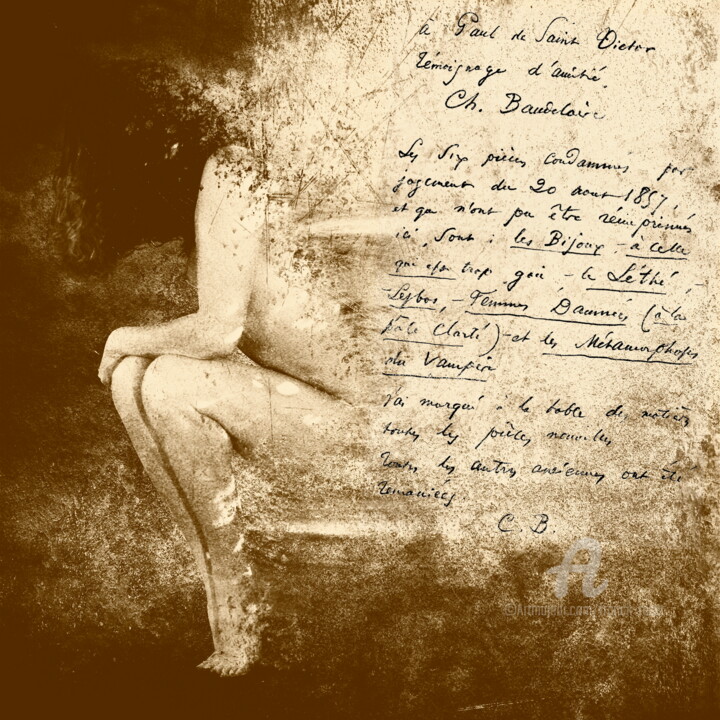 à Paul de Saint Victor
témoignage d'amitié.
Ch. Baudelaire
Les Six pièces condamnées par
jugement du 20 aout 1857,
et qui n'ont pu être réimprimées
ici, sont : les Bijoux - à celle
qui est trop gaie - le Léthé, -
Lesbos, - Femmes Damnées (à la
pâle clarté) - et les Métamorphoses
du Vampire
J'ai marqué à la table des matières
toutes les pièces nouvelles
toutes les autres anciennes ont été
remaniées
C. B.
A
©Artmajeur.com